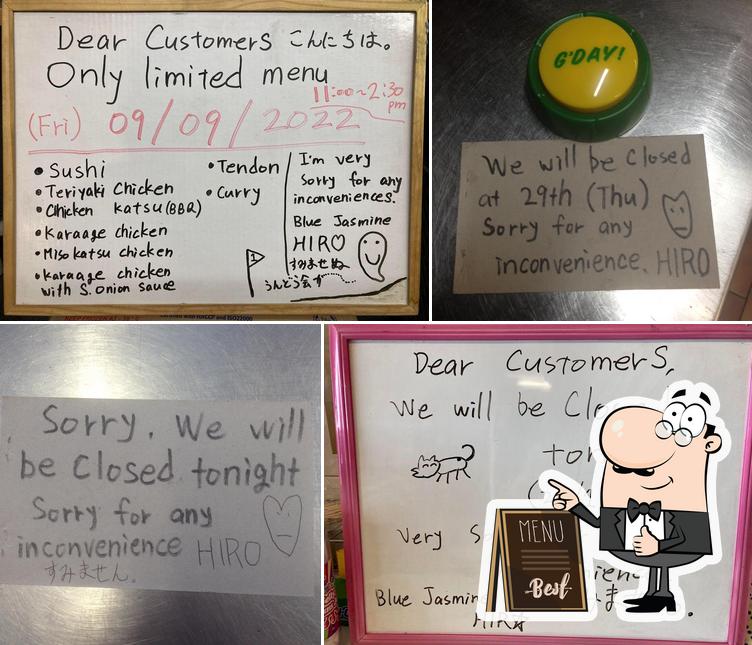 Dear Customers こんにちは。
Only limited menu
11:00~2:30
pm
(Fri) 09/09/2022
• Sushi
• Teriyaki Chicken
• Chicken katsu (BBQ)
• Karaage chicken
• Miso katsu chicken
• Karaage chicken
with S. onion sauce
• Tendon
• Curry
I'm very
sorry for any
inconveniences.
Blue Jasmine
HIRO
すみませぬ
1
うんどう会す
G'DAY!
We will be closed
at 29th (Thu)
Sorry for any
inconvenience. HIRO
Sorry. We will
be closed tonight
Sorry for any
inconvenience HIRO
すみません。
Dear Customers,
We will be
Very
Blue Jasmine
HIRO
MENU
Best